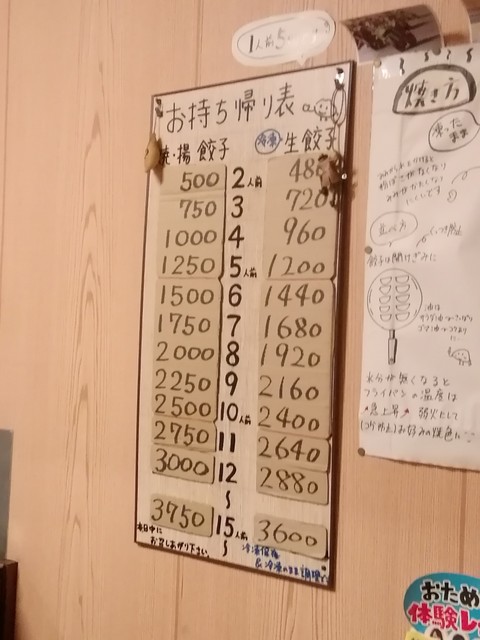 1人前5
お持ち帰り表
焼・揚 餃子 冷凍 生餃子
500 2人前 480
750 3 720
1000 4 960
1250 5人前 1200
1500 6 1440
1750 7 1680
2000 8 1920
2250 9 2160
2500 10人前 2400
2750 11 2640
3000 12 2880
〜
3750 15人前 3600
〜
本日中に
お召しあがり下さい。
冷凍保存
&冷凍のまま調理
焼き方
凍った
まま
餃子は開けぎみに
油は
サラダ油
ゴマ油
水分が無くなると
フライパンの温度は
急上昇 弱火にして
お好みの焼色に
おため
体験レ